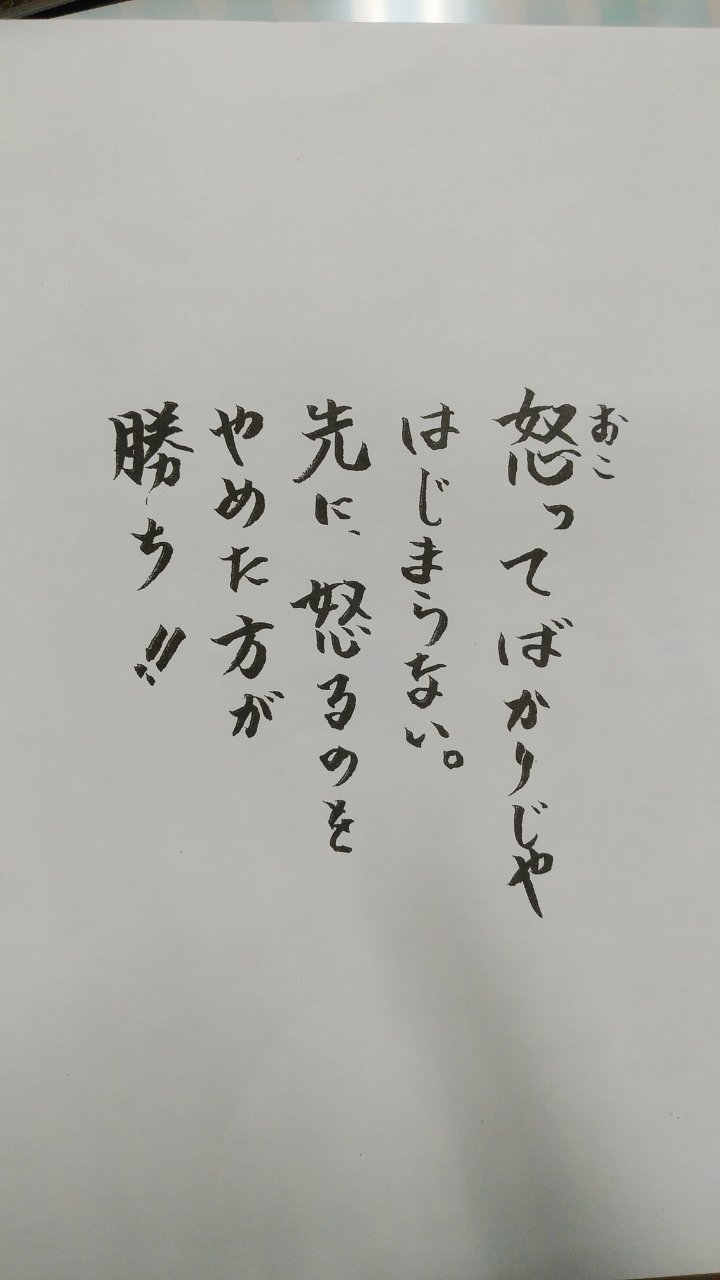 おこ
怒ってばかりじゃ
はじまらない。
先に、怒るのを
やめた方が
勝ち!!